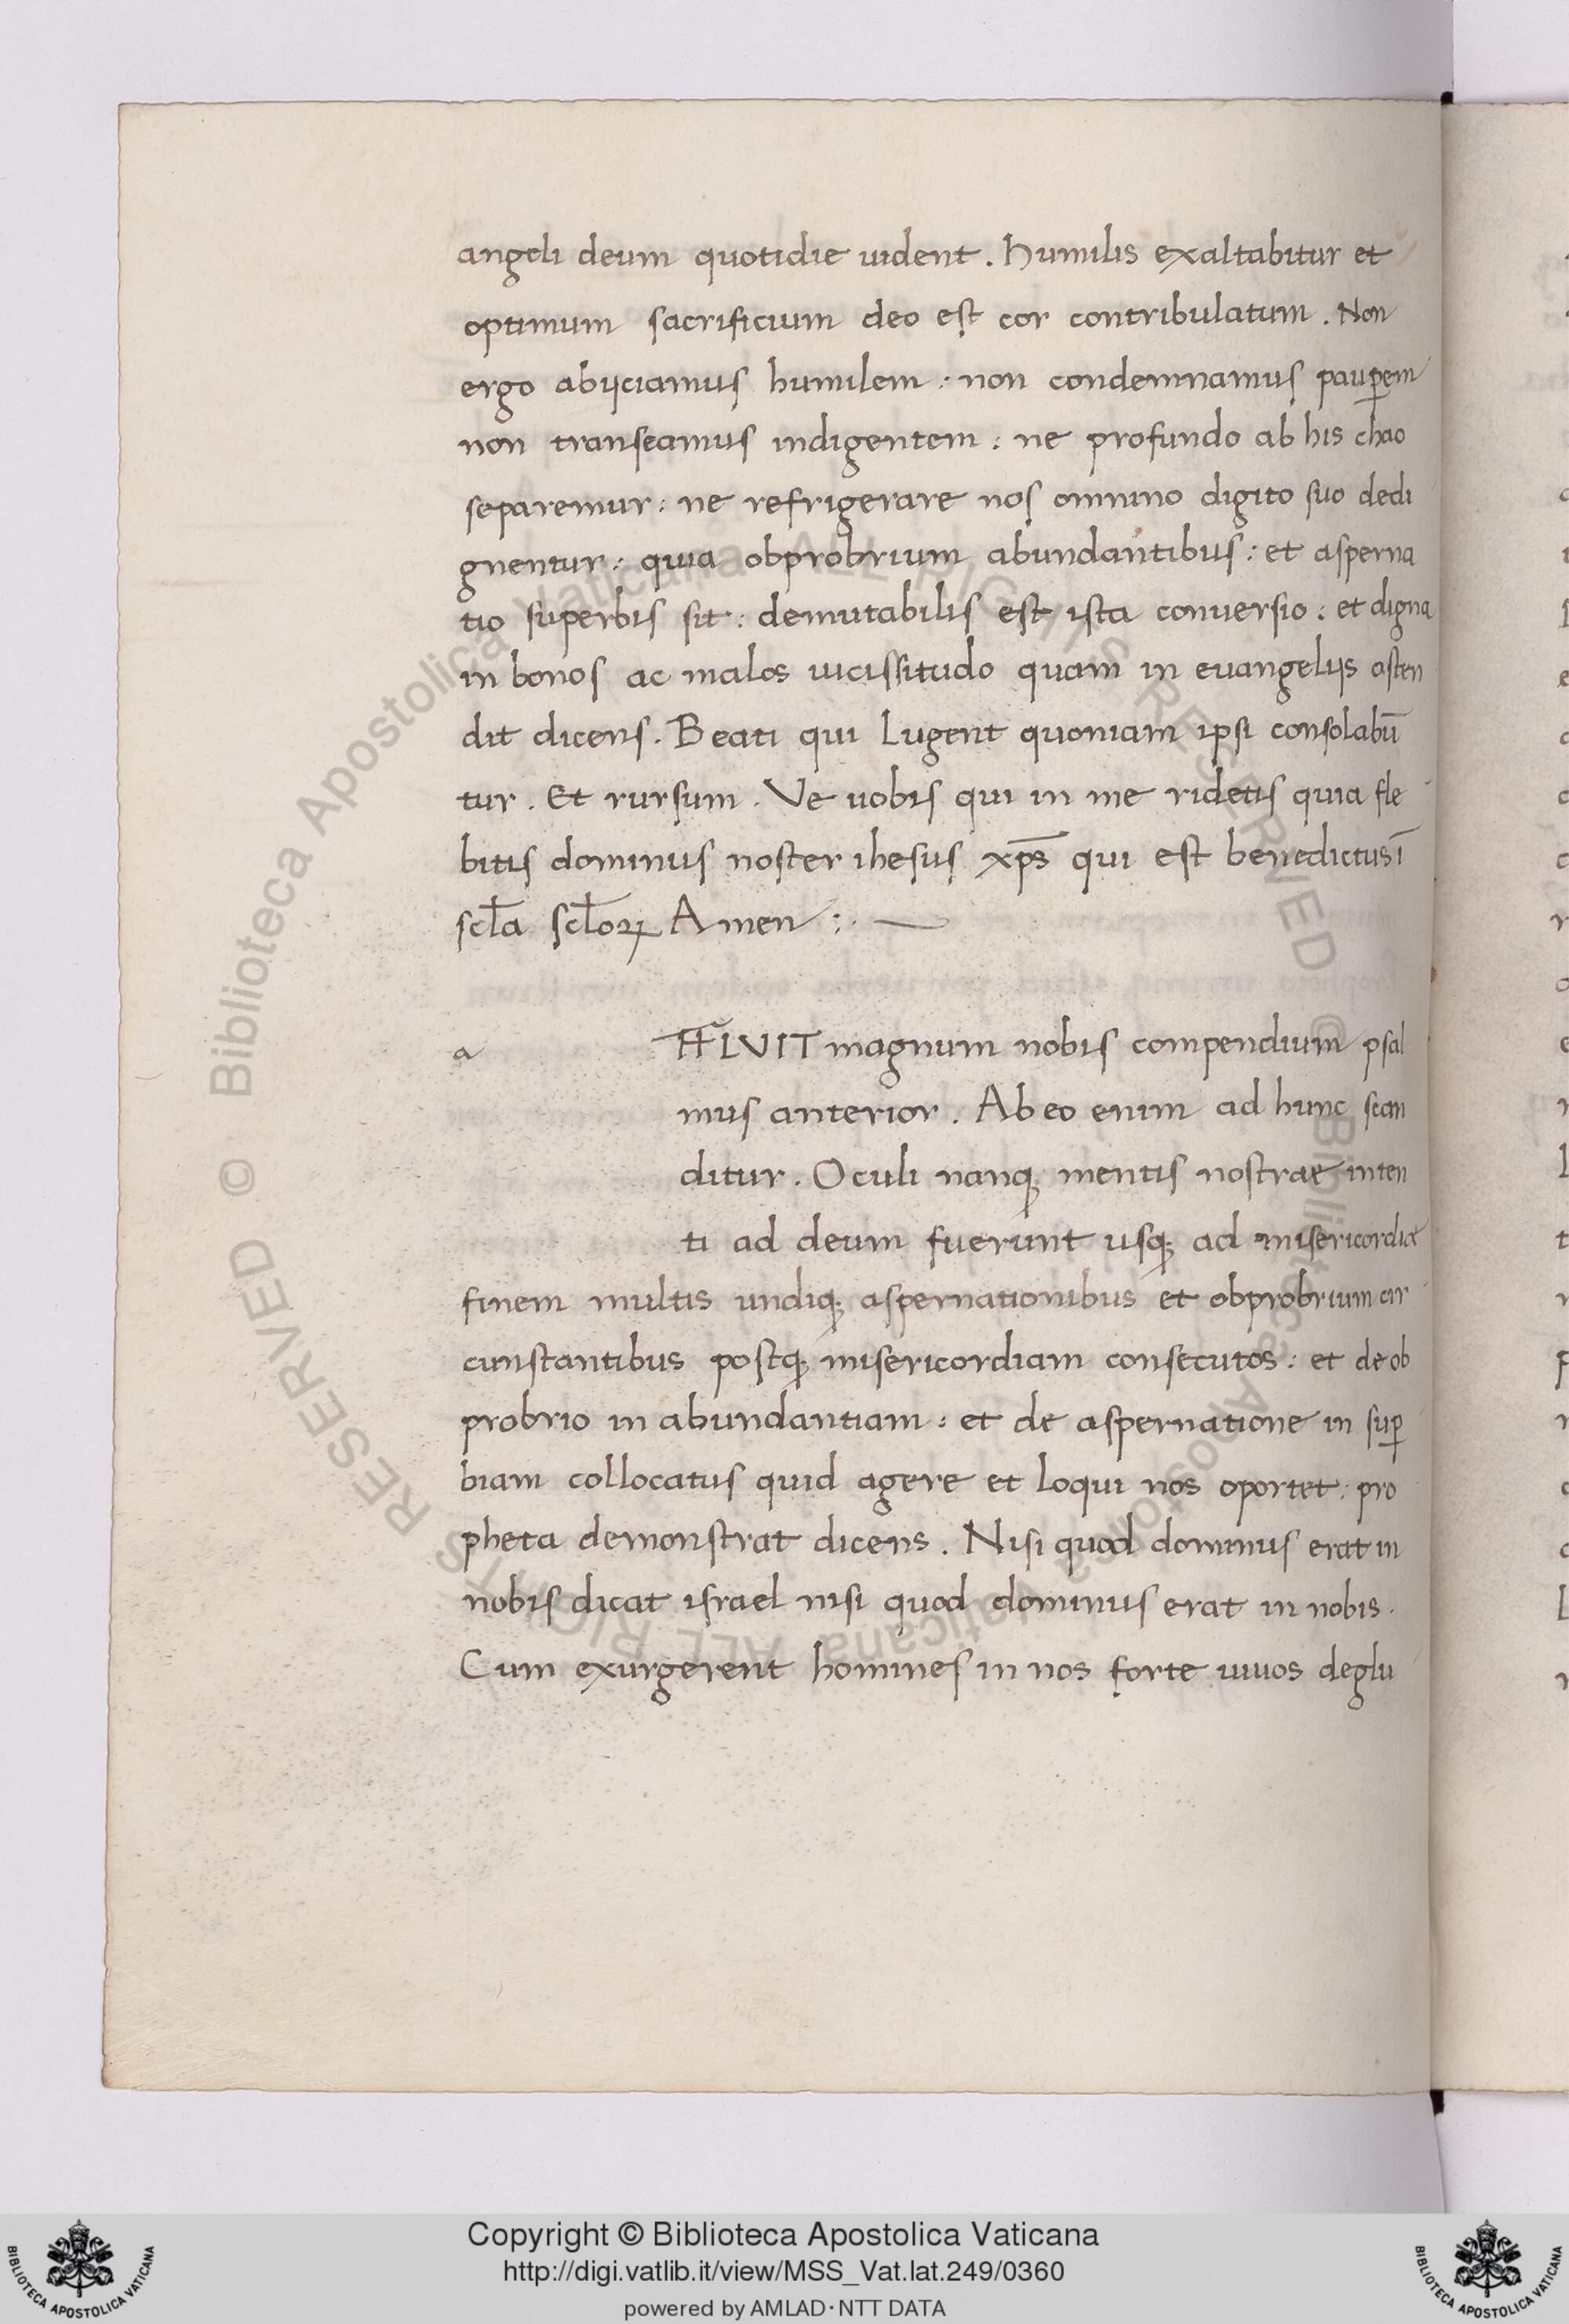 angeli deum quotidie uident. Humilis exaltabitur et
optimum sacrificium deo est cor contribulatum. Non
ergo abijciamus humilem: non condemnamus paup̱em
non transeamus indigentem: ne profundo ab his chao
separemur: ne refrigerare nos omnino digito suo dedi
gnentur: quia obprobrium abundantibus: et asperna
tio superbis sit: demutabilis est ista conuersio: et digna
in bonos ac malos uicissitudo quam in euangelijs osten
dit dicens. Beati qui lugent quoniam ipsi consolabū
tur. Et rursum. Ve uobis qui in me ridetis quia fle
bitis dominus noster ihesus xp̄s qui est benedictus ī
scl̄a scl̄oꝝ Amen:.—
a
FFLVIT magnum nobis compendium psal
mus anterior. Ab eo enim ad hunc scan
ditur. Oculi nanqꝫ mentis nostrae inten
ti ad deum fuerunt usqꝫ ad misericordiae
finem multis undiqꝫ aspernationibus et obprobrium cir
cunstantibus postqꝫ misericordiam consecutos: et de ob
probrio in abundantiam: et de aspernatione in sup̱
biam collocatus quid agere et loqui nos oportet: pro
pheta demonstrat dicens. Nisi quod dominus erat in
nobis dicat israel nisi quod dominus erat in nobis.
Cum exurgerent homines in nos forte uiuos deglu
© Biblioteca Apostolica Vaticana ALL RIGHTS RESERVED © Biblioteca Apostolica Vaticana ALL RIGHTS RESERVED
Copyright © Biblioteca Apostolica Vaticana
http://digi.vatlib.it/view/MSS_Vat.lat.249/0360
powered by AMLAD·NTT DATA
BIBLIOTECA APOSTOLICA VATICANA
BIBLIOTECA APOSTOLICA VATICANA